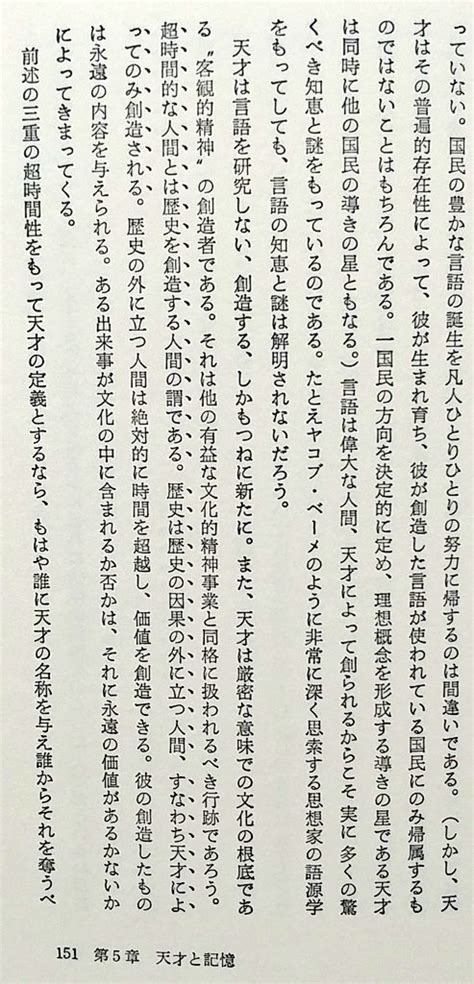 っていない。国民の豊かな言語の誕生を凡人ひとりひとりの努力に帰するのは間違いである。（しかし、天
才はその普遍的存在性によって、彼が生まれ育ち、彼が創造した言語が使われている国民にのみ帰属するも
のではないことはもちろんである。一国民の方向を決定的に定め、理想概念を形成する導きの星である天才
は同時に他の国民の導きの星ともなる。）言語は偉大な人間、天才によって創られるからこそ実に多くの驚
くべき知恵と謎をもっているのである。たとえヤコブ・ベーメのように非常に深く思索する思想家の語源学
をもってしても、言語の知恵と謎は解明されないだろう。
天才は言語を研究しない、創造する、しかもつねに新たに。また、天才は厳密な意味での文化の根底であ
る〝客観的精神〟の創造者である。それは他の有益な文化的精神事業と同格に扱われるべき行跡であろう。
超時間的な人間とは歴史を創造する人間の謂である。歴史は歴史の因果の外に立つ人間、すなわち天才によ
ってのみ創造される。歴史の外に立つ人間は絶対的に時間を超越し、価値を創造できる。彼の創造したもの
は永遠の内容を与えられる。ある出来事が文化の中に含まれるか否かは、それに永遠の価値があるかないか
によってきまってくる。
前述の三重の超時間性をもって天才の定義とするなら、もはや誰に天才の名称を与え誰からそれを奪うべ
151 第5章 天才と記憶